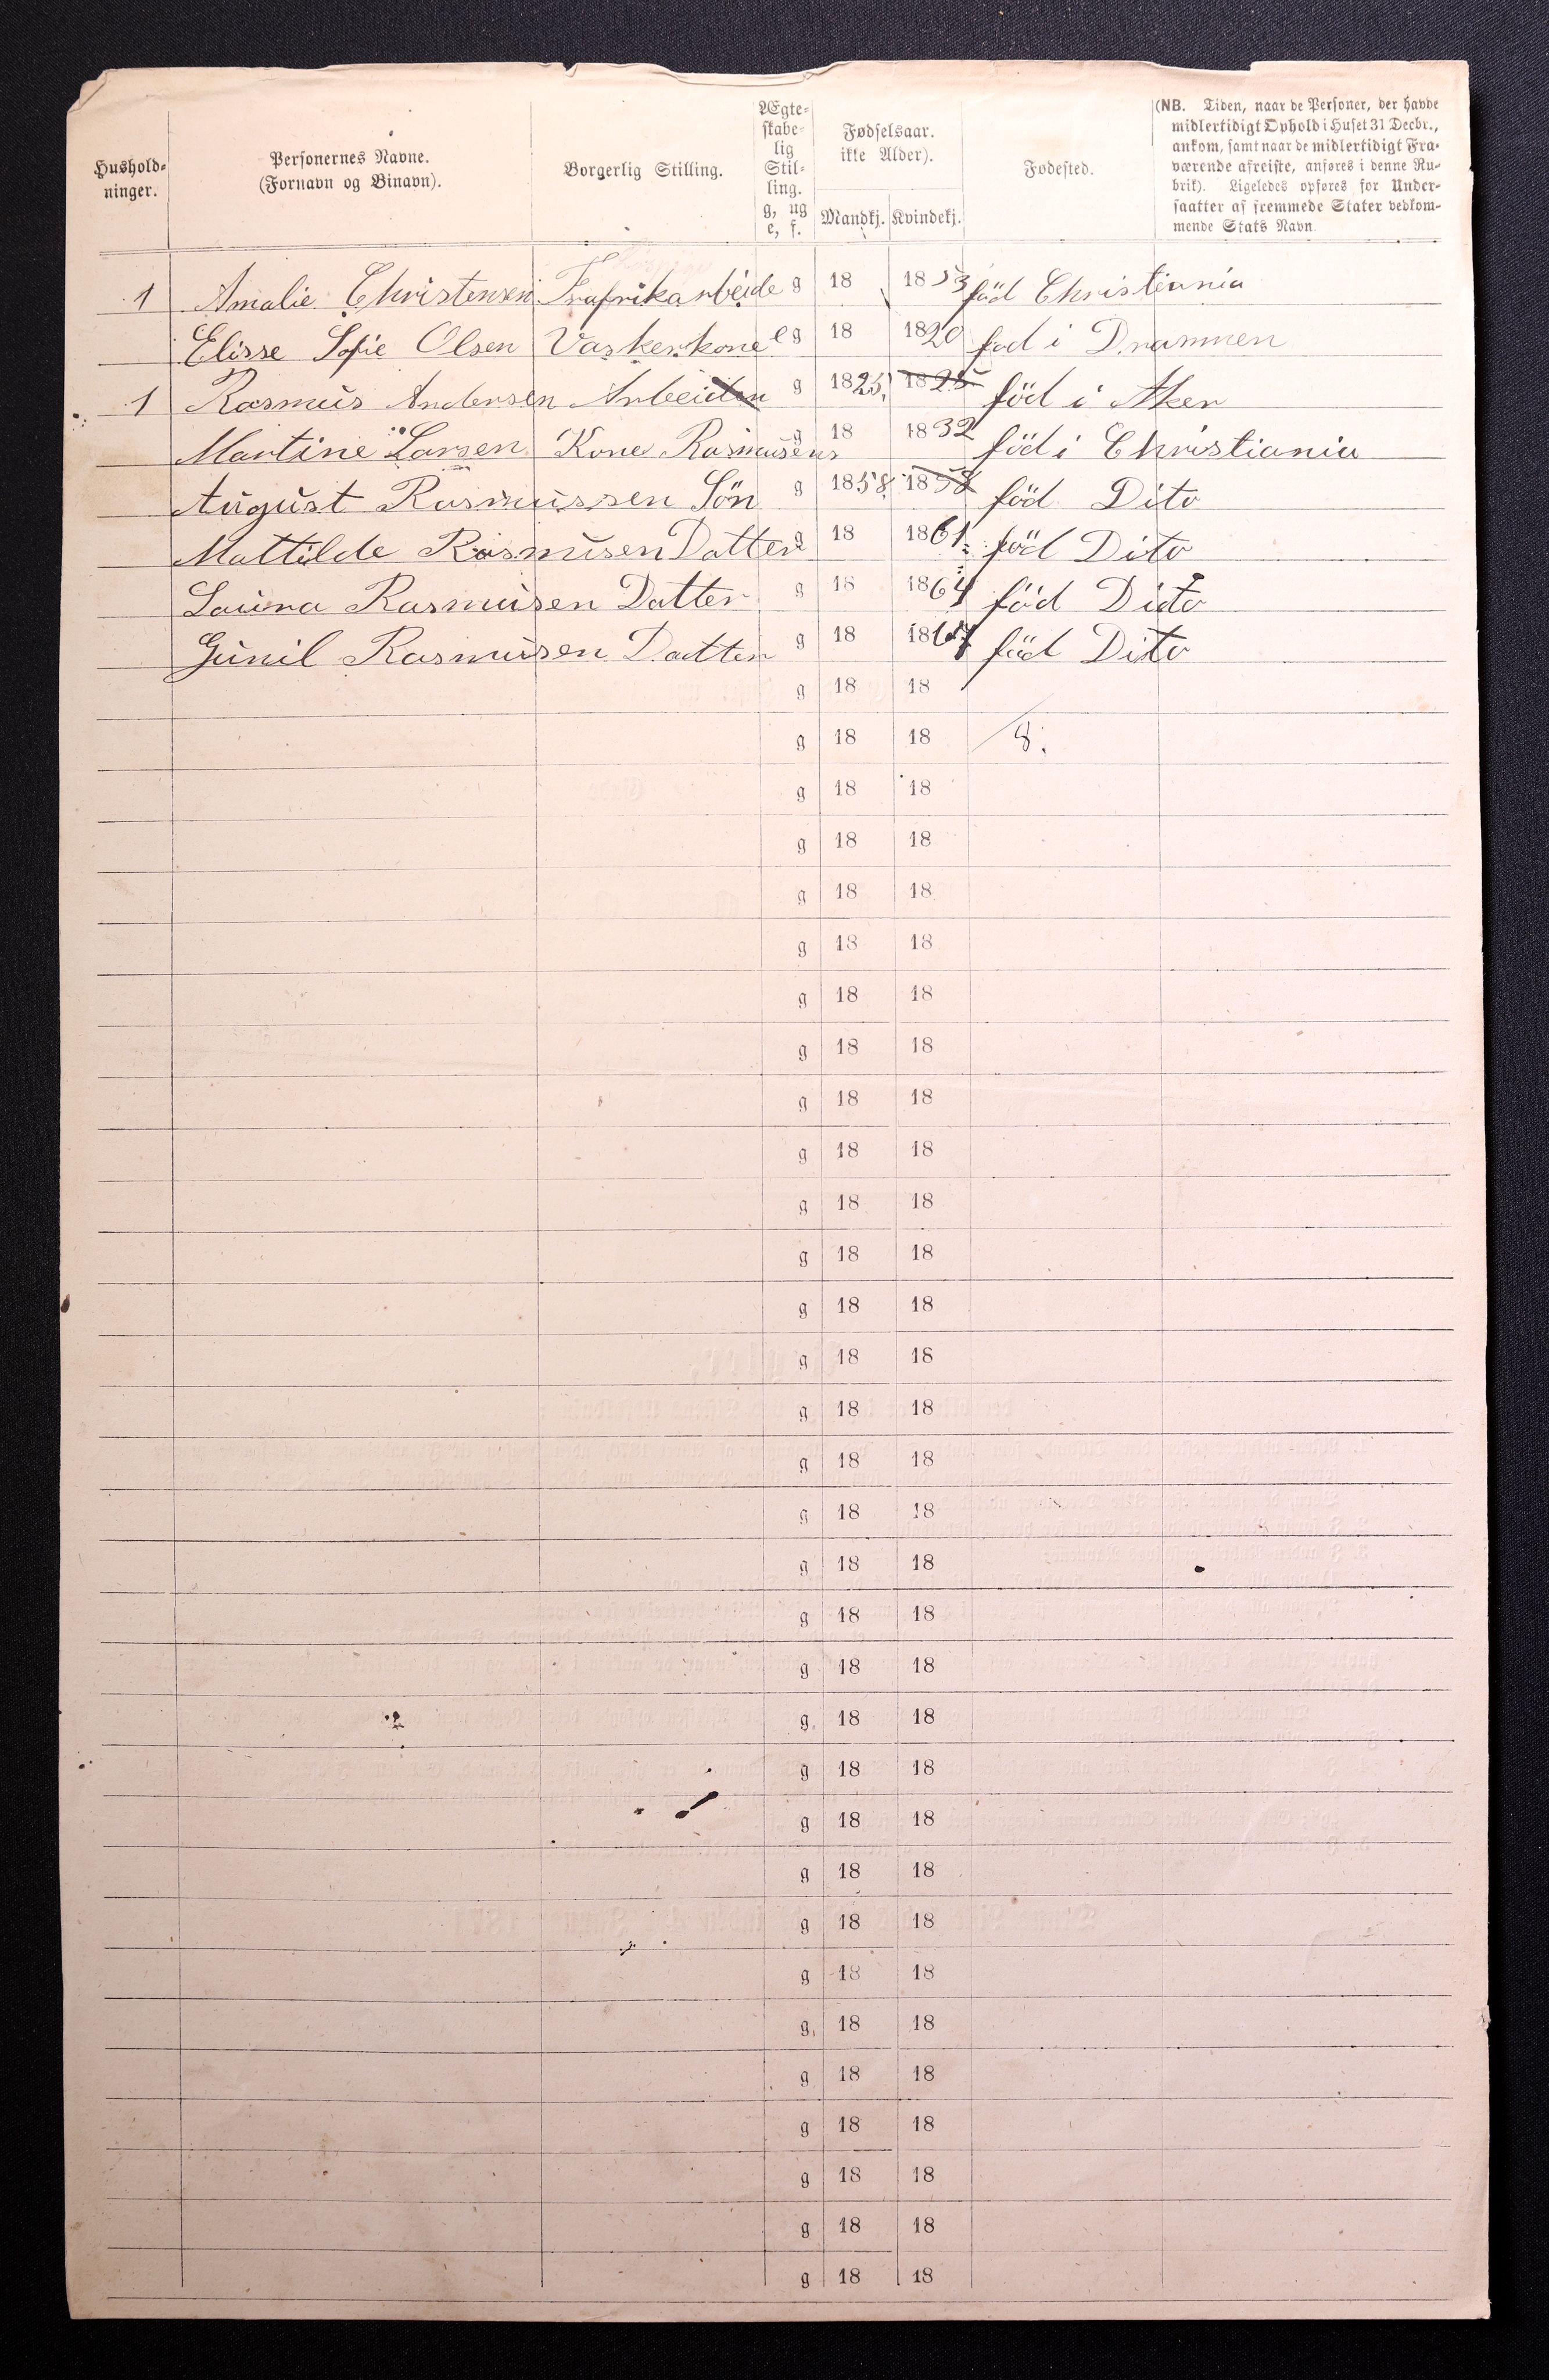 Hushold-
ninger.
Personernes Navne.
(Fornavn og Binavn).
Borgerlig Stilling.
Ægte-
skabe-
lig
Stil-
ling.
g, ug
e, f.
Fødselsaar.
ikke Alder).
Mandkj. Kvindekj.
Fødested.
(NB. Tiden, naar de Personer, der havde
midlertidigt Ophold i Huset 31 Decbr.,
ankom, samt naar de midlertidigt Fra-
værende afreiste, anføres i denne Ru-
brik). Ligeledes opføres for Under-
saatter af fremmede Stater vedkom-
mende Stats Navn.
1 Amalie Christensen g 18 1853 föd Christiania
Elisse Sofie Olsen Vaskerkone e g 18 1820 fød i Drammen
1 Rasmus Andersen Arbeider g 1825 1825 föd i Aker
Martine Larsen Kone Rasmusens g 18 1832 föd i Christiania
August Rasmussen Sön g 1858 1858 föd Dito
Mattilde Rasmusen Datter g 18 1861 föd Dito
Laura Rasmusen Datter g 18 1864 föd Dito
Gunil Rasmusen Datter g 18 1867 föd Dito
g 18 18
g 18 18 8.
g 18 18
g 18 18
g 18 18
g 18 18
g 18 18
g 18 18
g 18 18
g 18 18
g 18 18
g 18 18
g 18 18
g 18 18
g 18 18
g 18 18
g 18 18
g 18 18
g 18 18
g 18 18
g 18 18
g 18 18
g 18 18
g 18 18
g 18 18
g 18 18
g 18 18
g 18 18
g 18 18
g 18 18
g 18 18
g 18 18